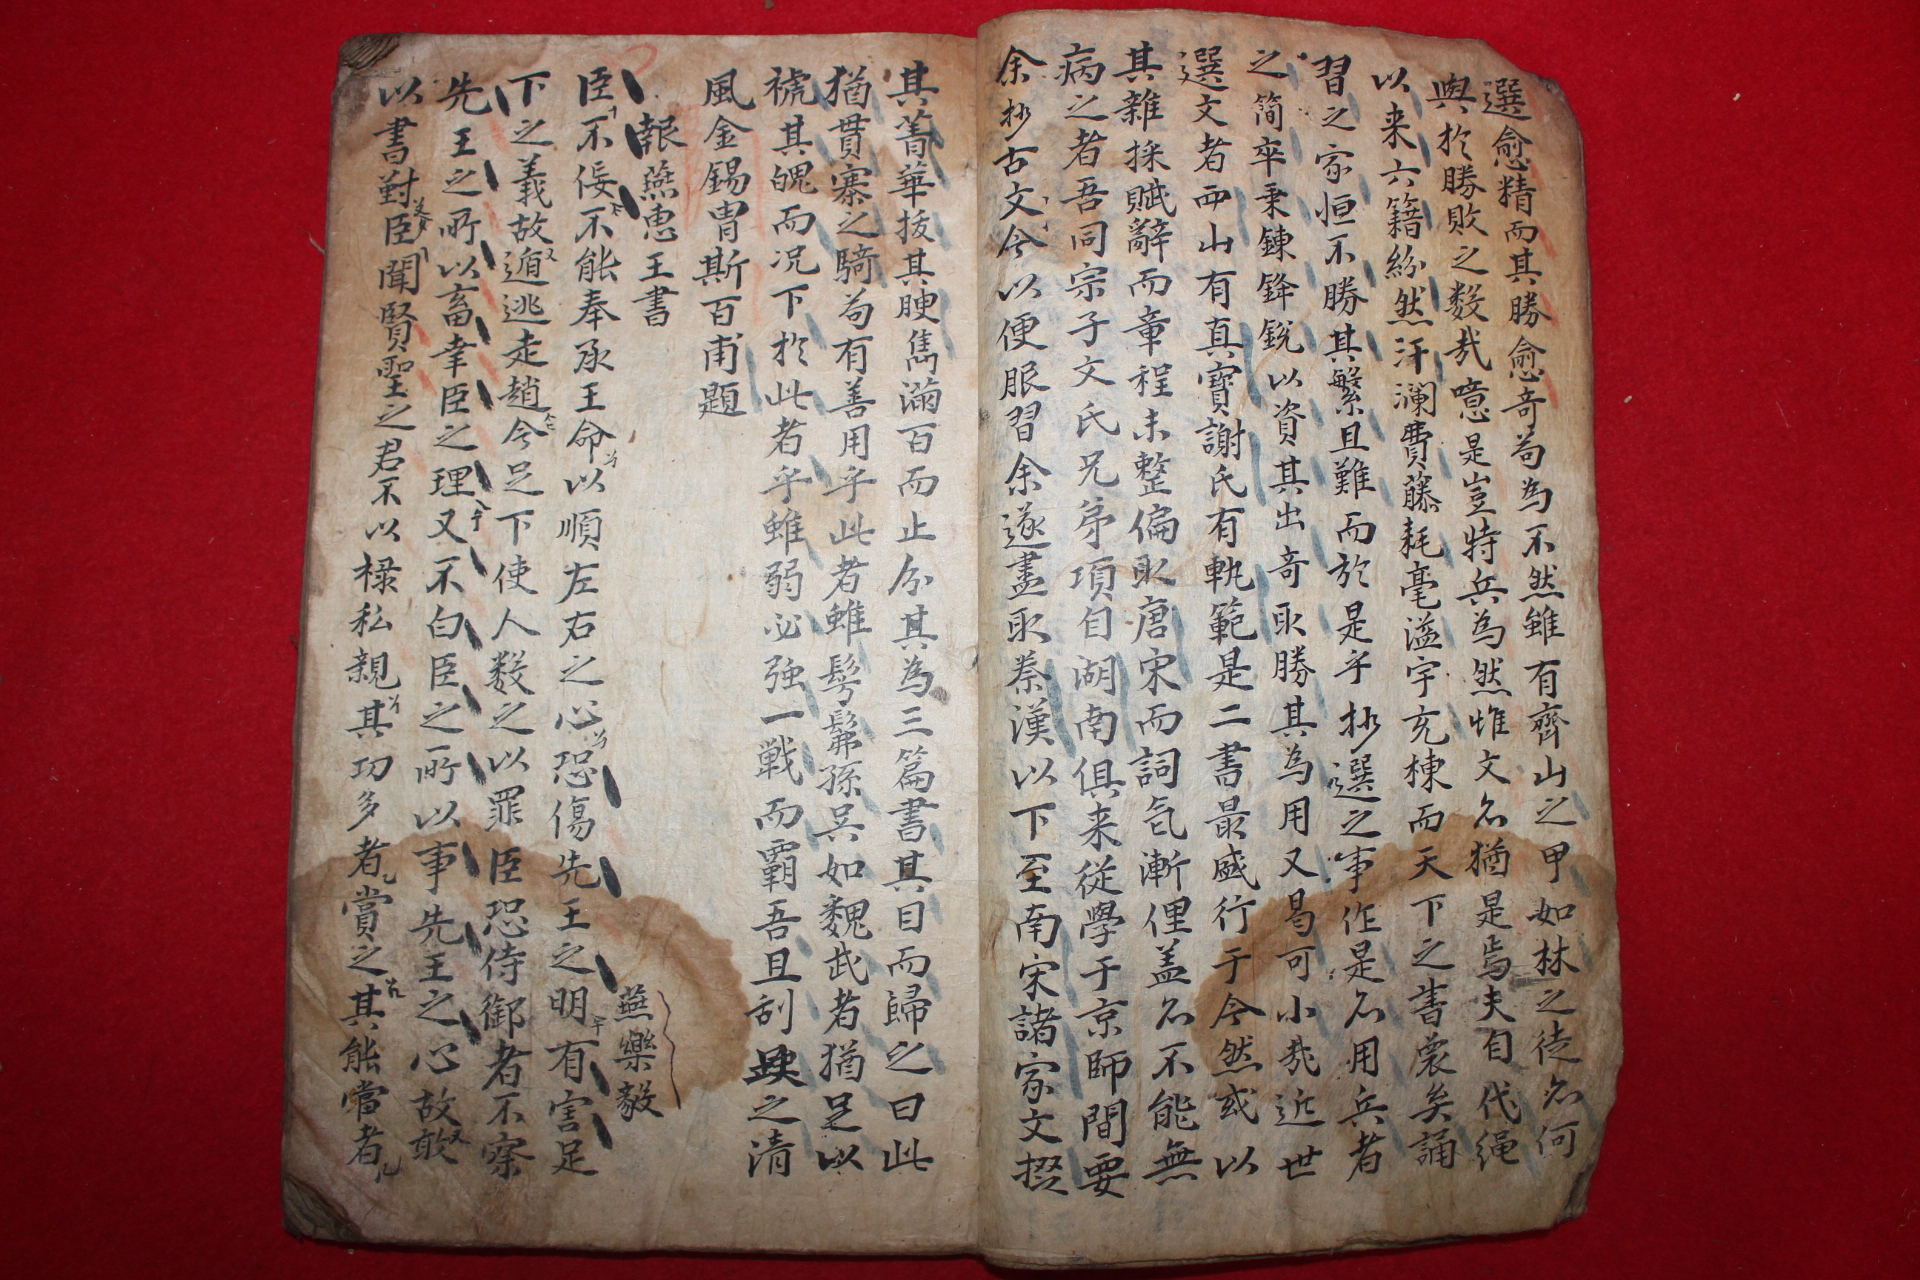 選愈精而其勝愈奇苟為不然雖有齊山之甲如林之徒名何
與於勝敗之数哉噫是豈特兵為然惟文名猶是焉夫自代繩
以来六籍紛然汗瀾費藤耗毫溢宇充棟而天下之書衆矣誦
習之家恒不勝其繁且難而於是乎抄選之事作是名用兵者
之简卒秉鍊鋒鋭以資其出奇取勝其為用又曷可小哉近世
選文者西山有真寶謝氏有軌範是二書最盛行于今然或以
其雜採賦辭而章程未整偏取唐宋而詞气漸俚盖名不能無
病之者吾同宗子文氏兄弟項自湖南俱来從學于京師間要
余抄古文今以便服習余遂盡取秦漢以下至南宋諸家文掇
其菁華拔其腴雋滿百而止分其為三篇書其目而歸之曰此
猶貫寨之騎苟有善用乎此者雖髣髴孫吴如魏武者猶足以
褫其魄而况下於此者乎雖弱必强一戦而覇吾且刮之清
風金錫胄斯百甫題
報燕惠王書
燕樂毅
臣不佞不能奉承王命以順左右之心恐傷先王之明有害足
下之義故遁逃走趙今足下使人数之以罪臣恐侍御者不察
先王之所以畜幸臣之理又不白臣之所以事先王之心故敢
以書對臣聞賢聖之君不以祿私親其功多者賞之其能當者